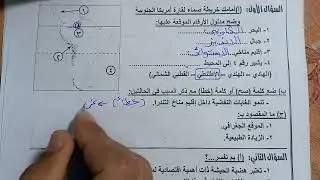 السؤال الأول: (أ) أمامك خريطة صماء لقارة أمريكا الجنوبية
وضح مدلول الأرقام الموقعة عليها:
١- البحر
٢- جبال
٣- إقليم مناخي
٤- يشير رقم ٤ إلى المحيط
(الهادي - الهندي - الأطلنطي - القطبي الشمالي)
(ب) ضع كلمة (صح) أو كلمة (خطأ) مع ذكر السبب في الحالتين:
- تنمو الغابات النفاضية داخل إقليم مناخ التندرا. (خطأ)
(ج) ما المقصود بـ:
١- الموقع الجغرافي.
٢- الزيادة الطبيعية.
السؤال الثاني: (أ) بم تفسر...؟
١- تعتبر هضبة الحبشة ذات أهمية اقتصادية
١
٢
٣
٤